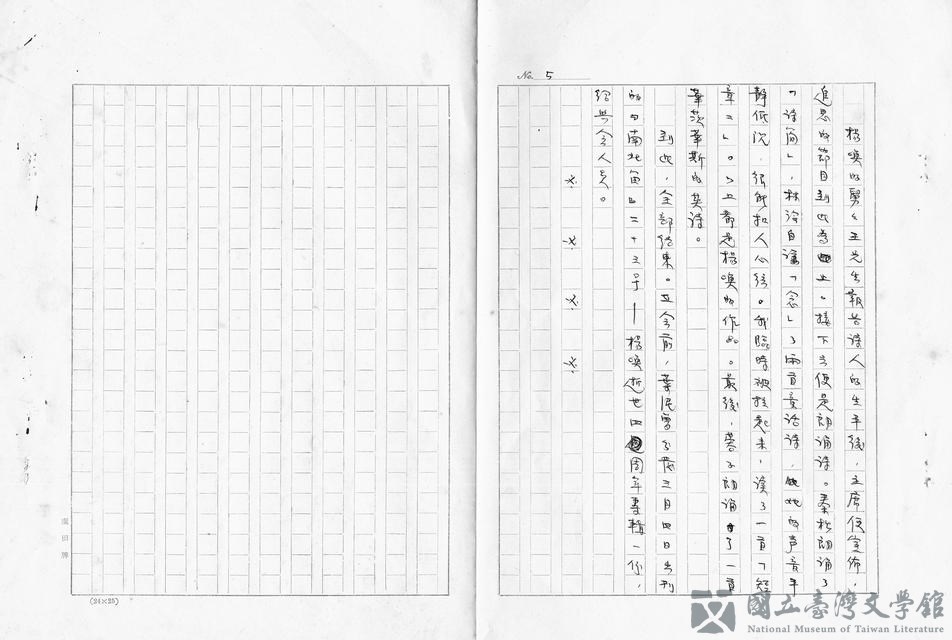 No. 5
楊喚的舅父王先生報告詩人的生平後，主席便宣佈，
追思的節目到此為止。接下去便是朗誦詩。秦松朗誦了
「詩簡」，林泠自讀「念」了兩首童話詩，她的声音平
靜低沉，很能扣人心絃。我臨時被拉起来，讀了一首「短
章二」。以上都是楊喚的作品。最後，蓉子朗誦了一首
華茨華斯的英詩。
到此，全部結束。在会前，葉泥曾分發三月四日出刊
的『南北笛』二十三号—楊喚逝世四周年專輯一份，
給與会人士。
×× ×× ×× ××
蘆田牌
(24×25)
國立臺灣文學館
National Museum of Taiwan Literature